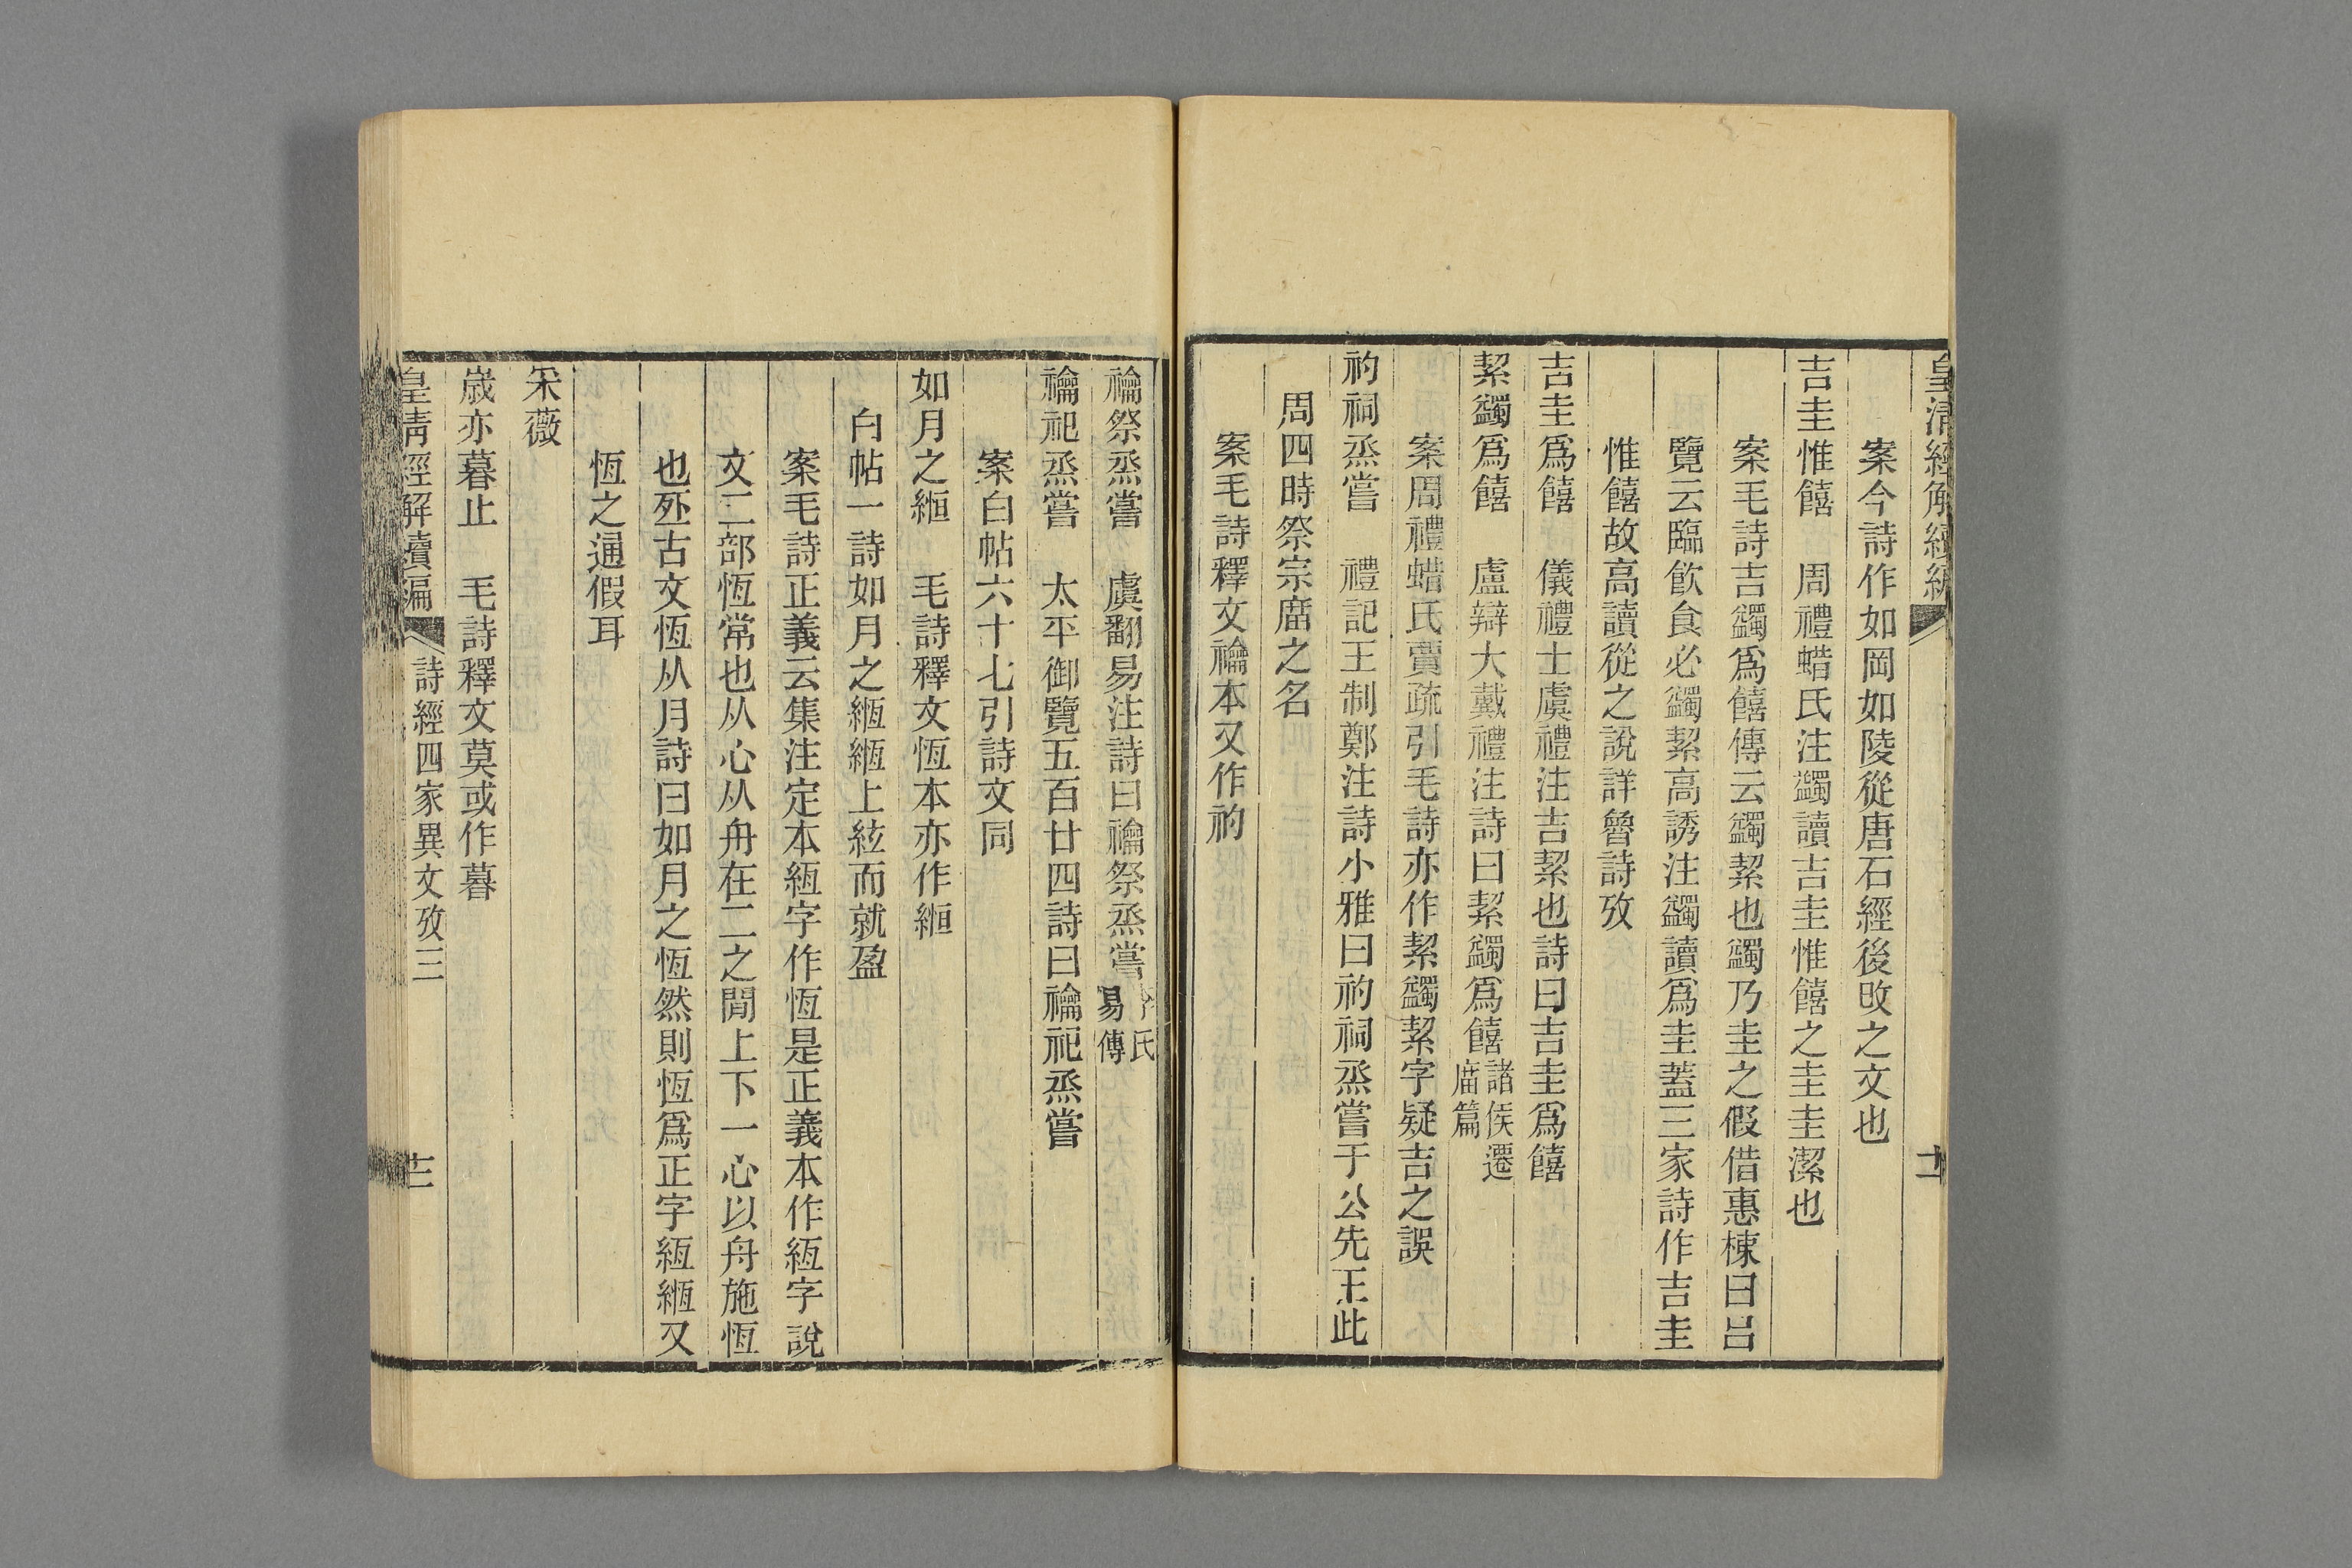 皇清經解續編
案今詩作如岡如陵從唐石經後改之文也
吉圭惟饎　周禮蜡氏注蠲讀吉圭惟饎之圭圭潔也
案毛詩吉蠲爲饎傳云蠲絜也蠲乃圭之假借惠棟曰呂
覽云臨飮食必蠲絜高誘注蠲讀爲圭蓋三家詩作吉圭
惟饎故高讀從之說詳魯詩攷
吉圭爲饎　儀禮士虞禮注吉絜也詩曰吉圭爲饎
絜蠲爲饎　盧辯大戴禮注詩曰絜蠲爲饎諸侯遷庿篇
案周禮蜡氏賈疏引毛詩亦作絜蠲絜字疑吉之誤
礿祠烝嘗　禮記王制鄭注詩小雅曰礿祠烝嘗于公先王此
周四時祭宗庿之名
案毛詩釋文禴本又作礿
禴祭烝嘗　虞翻易注詩曰禴祭烝嘗氏易傳
禴祀烝嘗　太平御覽五百廿四詩曰禴祀烝嘗
案白帖六十七引詩文同
如月之縆　毛詩釋文恆本亦作縆
白帖一詩如月之緪緪上絃而就盈
案毛詩正義云集注定本絚字作恆是正義本作絚字說
文二部恆常也从心从舟在二之閒上下一心以舟施恆
也𠄨古文恆从月詩曰如月之恆然則恆爲正字絚緪又
恆之通假耳
采薇
歲亦暮止　毛詩釋文莫或作暮
皇清經解續編　詩經四家異文攷三　十二